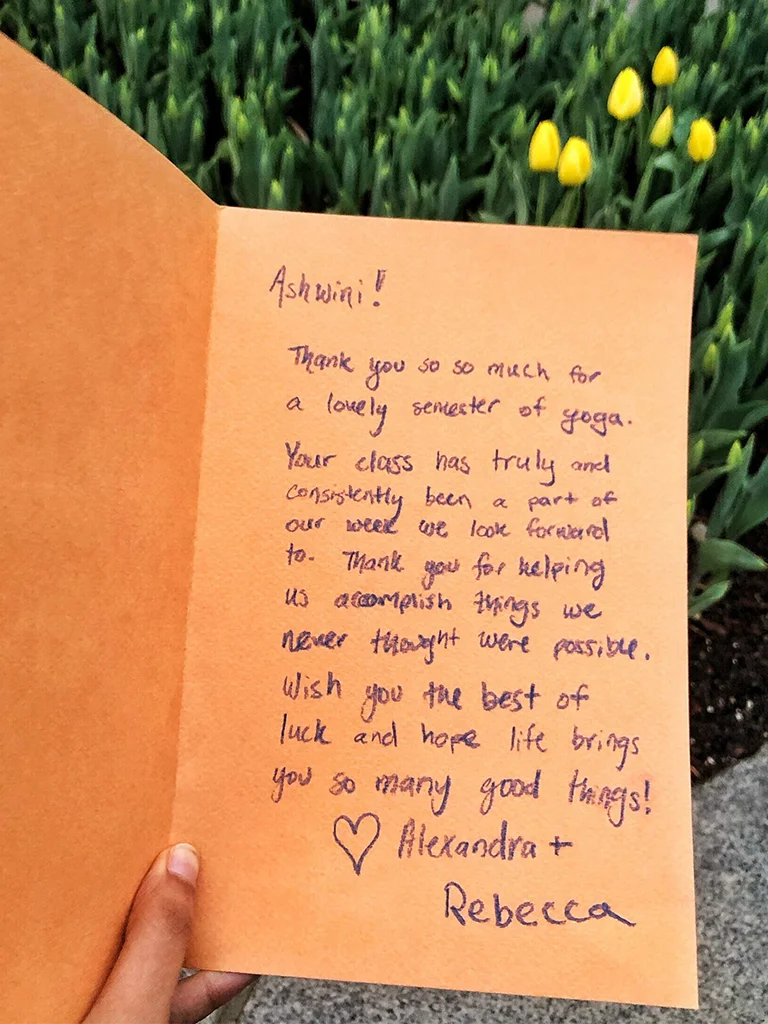 Ashwini!
Thank you so so much for
a lovely semester of yoga.
Your class has truly and
consistently been a part of
our week we look forward
to. Thank you for helping
us accomplish things we
never thought were possible.
Wish you the best of
luck and hope life brings
you so many good things!
♡ Alexandra +
Rebecca